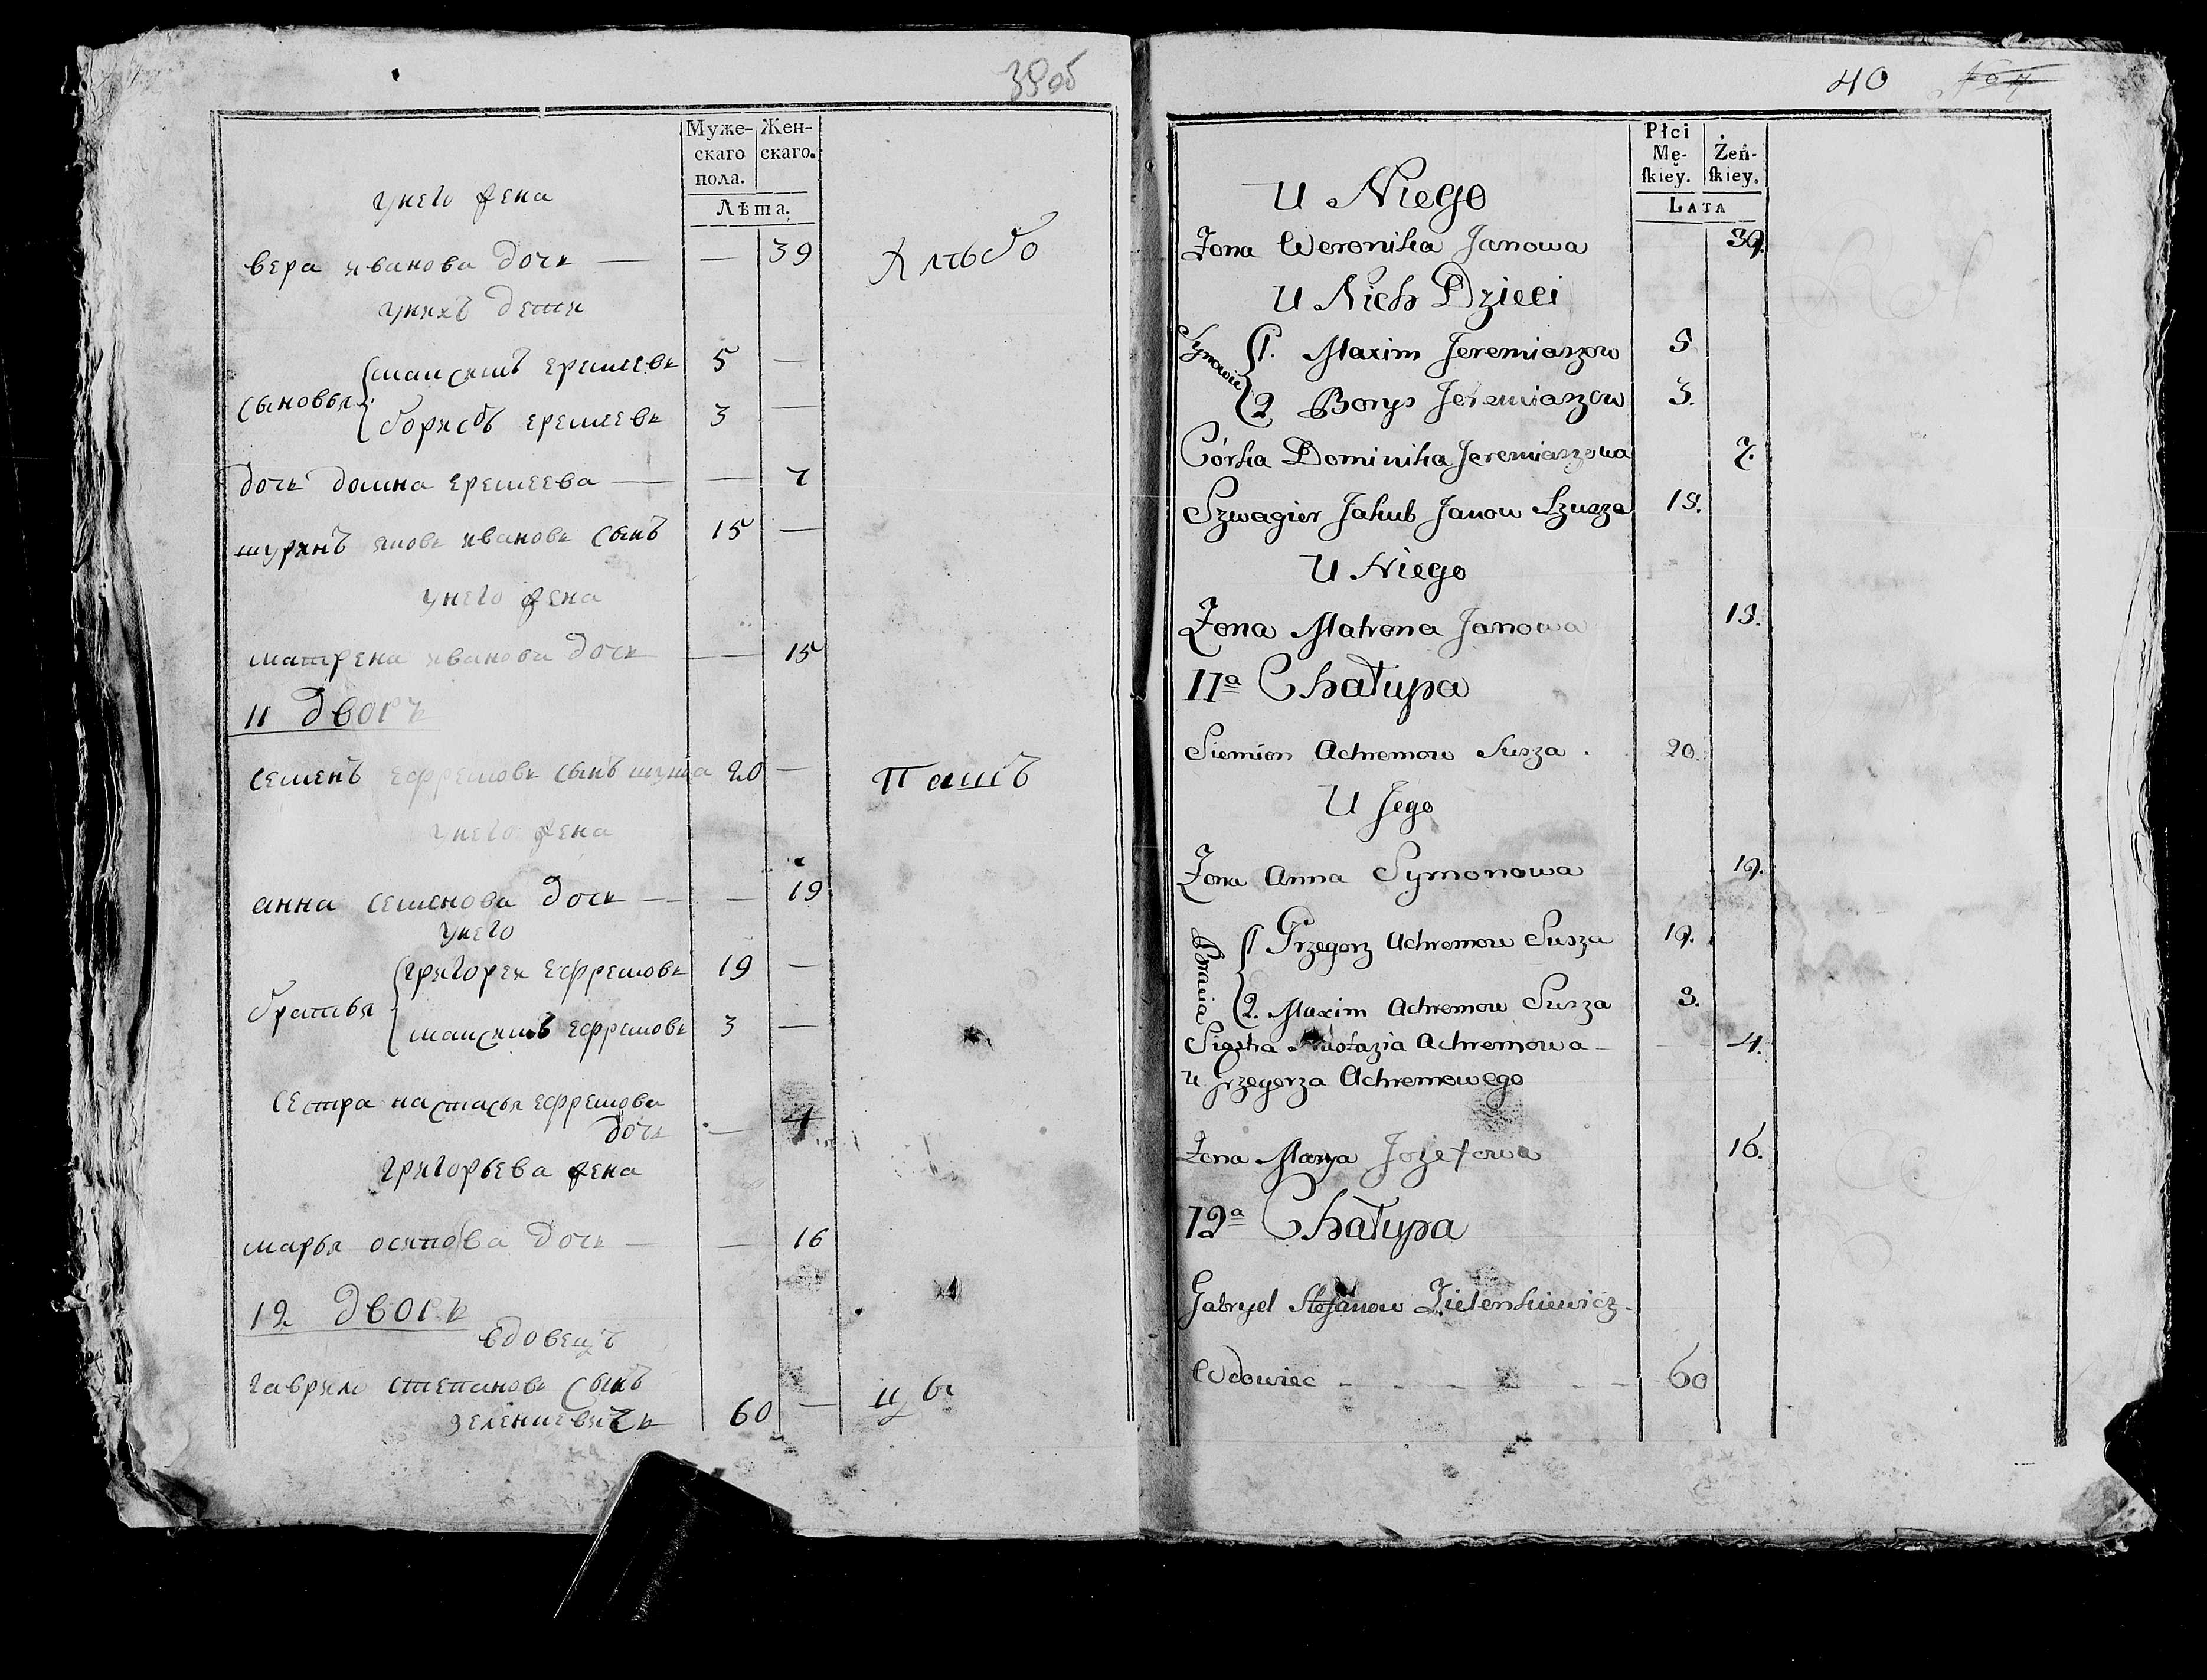 39об
Муже-
скаго
пола.
Жен-
скаго.
Лѣта.
унего жена
вера иванова дочь — — 39
унихъ дети
сыновья
максимъ еремеевъ 5 —
борисъ еремеевъ 3 —
дочь домна еремеева — — 7
шуринъ яковъ ивановъ сынъ 15 —
унего жена
матрена иванова дочь — 15
11 дворъ
семенъ ефремовъ сынъ шуша 20 —
унего жена
анна семенова дочь — — 19
унего
братья
григореи ефремовъ 19 —
максимъ ефремовъ 3 —
сестра настасья ефремова
дочь — 4
григорьева жена
марья осипова дочь — — 16
12 дворъ
вдовецъ
гаврило степановъ сынъ
зеленкевичъ 60 —
40
Płci
Mę-
ſkiey.
Żeń-
ſkiey.
LATA
U Niego
Żona Weronika Janowa 39.
U Nich Dzieci
Synowie
1. Maxim Jeremiaszow 5
2 Borys Jeremiaszow 3.
Córka Dominika Jeremiaszowa 7.
Szwagier Jakub Janow Szusza 15.
U Niego
Żona Matrona Janowa 15.
11ª Chałupa
Siemion Achremow Susza . 20.
U Jego
Żona Anna Symonowa 19.
Bracia
1 Grzegorz Achremow Susza 19.
2. Maxim Achremow Susza 3.
Siostra Achremowa 4.
u Grzegorza Achremowego
Żona Marya Jozefowa 16.
12ª Chałupa
Gabryel Stefanow Zielenkiewicz
Wdowiec - - - - - - 60